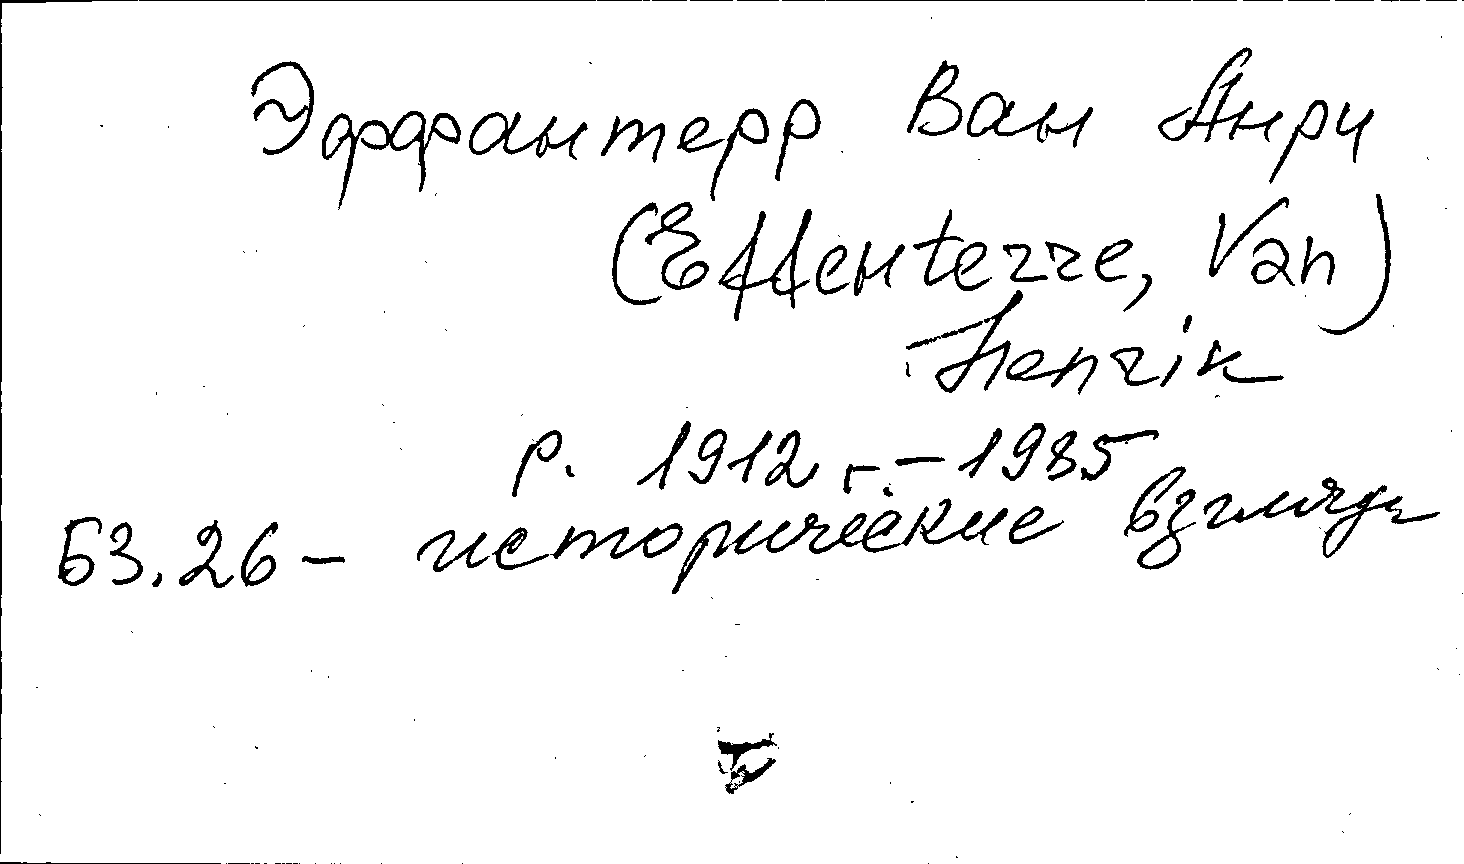 Эффантерр Ван Анри
(Effenterre, Van)
Henrik
р. 1912 г. – 1985
Б3.26 – исторические взгляды